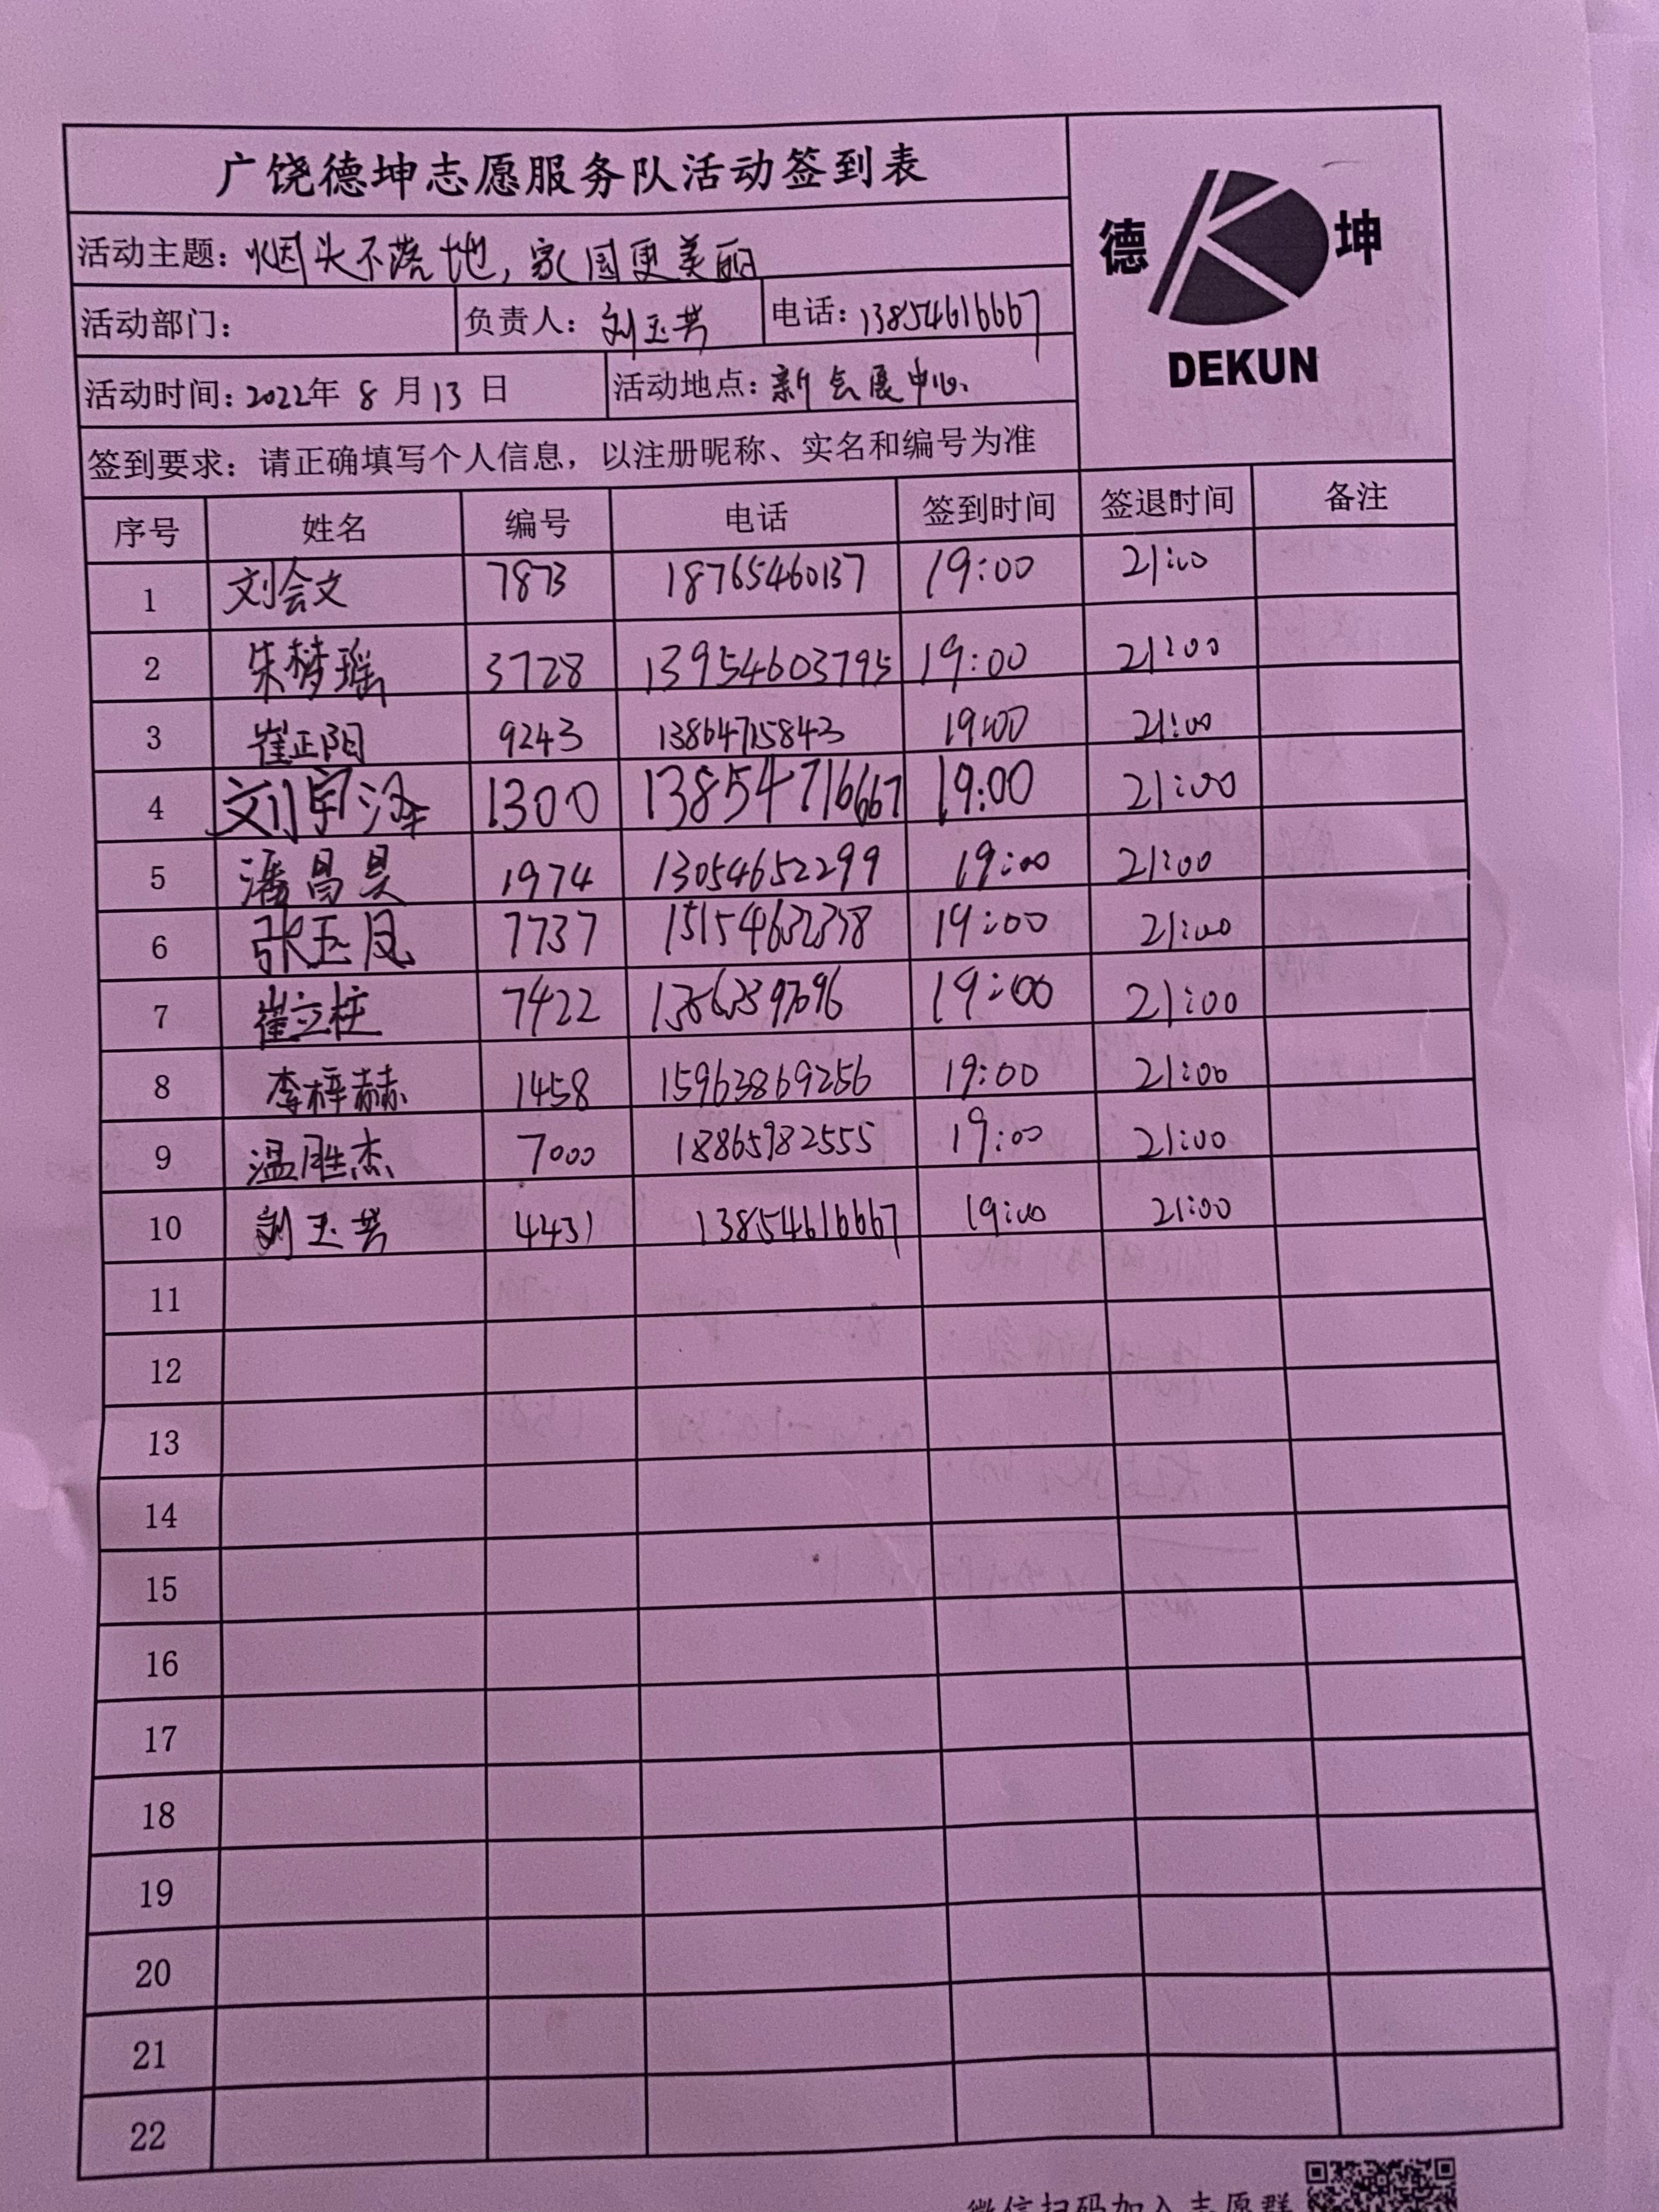 广饶德坤志愿服务队活动签到表
德 坤
DEKUN
活动主题：烟头不落地，家园更美丽
活动部门： 负责人：刘玉芳 电话：13854616667
活动时间：2022年 8 月 13 日 活动地点：新会展中心
签到要求：请正确填写个人信息，以注册昵称、实名和编号为准
序号 姓名 编号 电话 签到时间 签退时间 备注
1 刘会文 7873 18765460137 19:00 21:00
2 朱梦瑶 3728 13954603795 19:00 21:00
3 崔正阳 9243 13864715843 19:00 21:00
4 刘宇泽 1300 13854716667 19:00 21:00
5 潘昌昊 1974 13054652299 19:00 21:00
6 张玉凤 7737 19:00 21:00
7 崔立柱 7422 19:00 21:00
8 李梓赫 1458 15963869256 19:00 21:00
9 温胜杰 7000 18865982555 19:00 21:00
10 刘玉芳 4431 13854616667 19:00 21:00
11
12
13
14
15
16
17
18
19
20
21
22
微信扫码加入志愿群